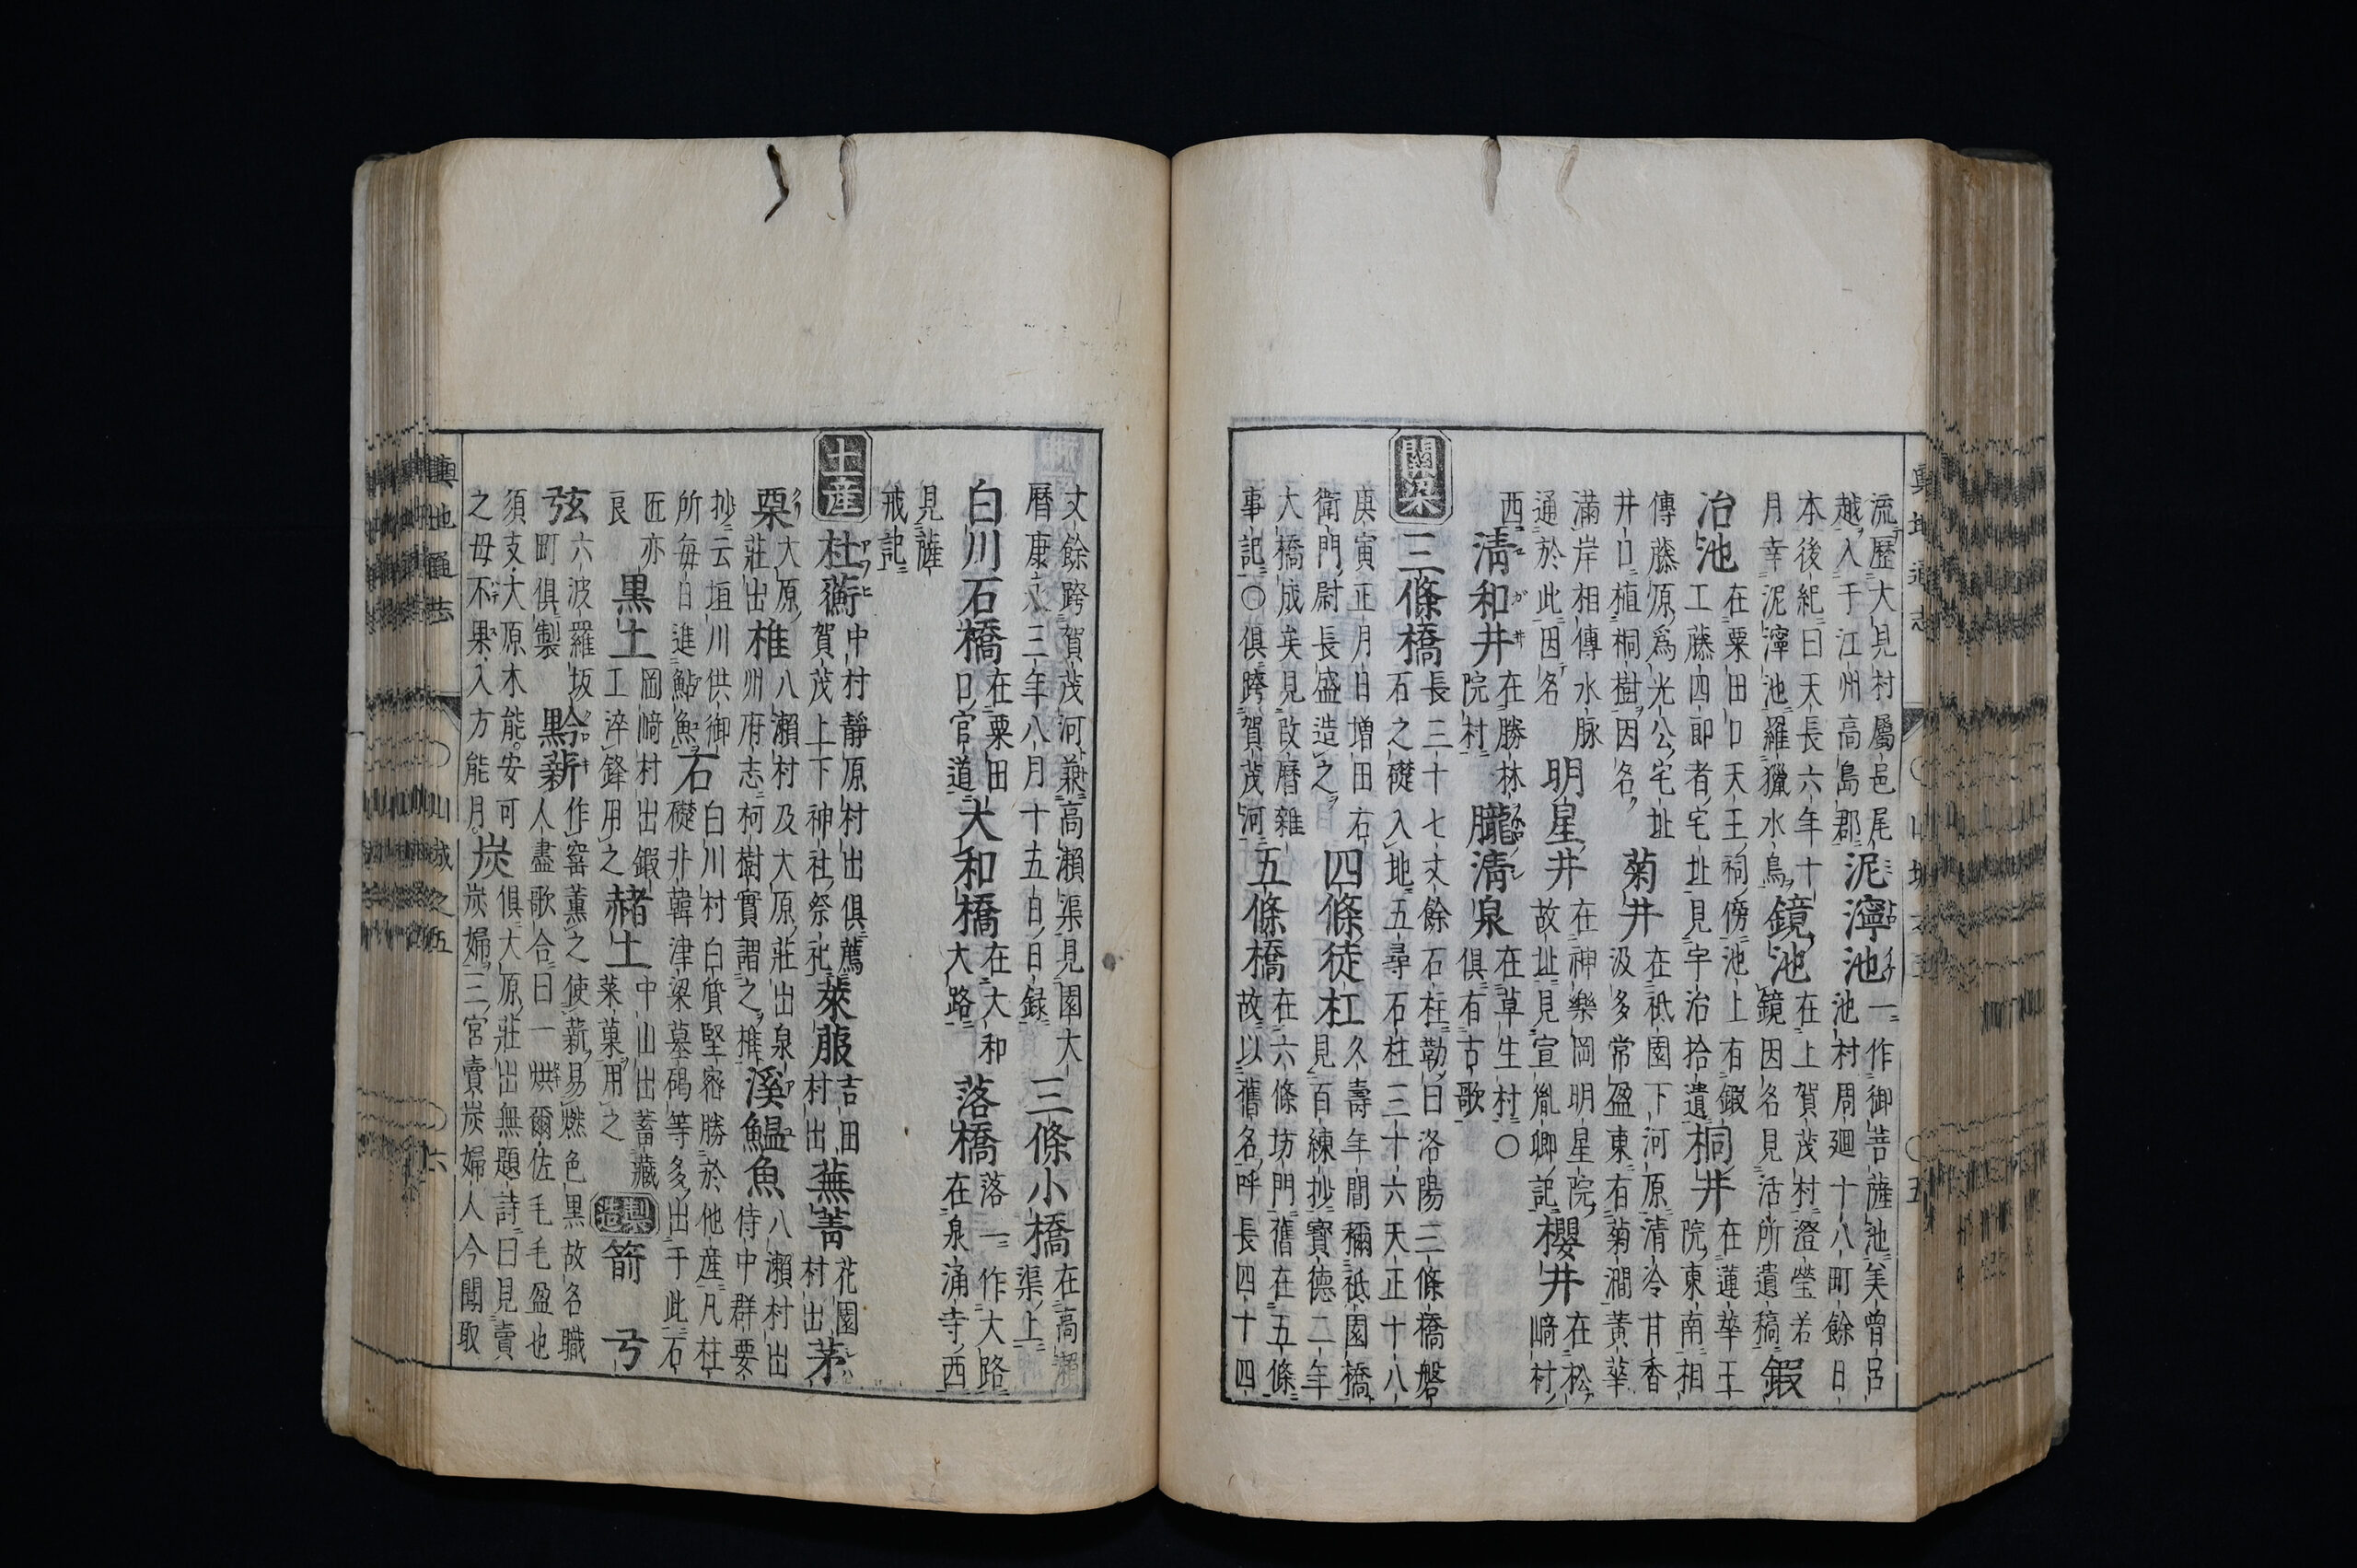 流歷大見村屬邑尾越入于江州高島郡泥濘池一作御菩薩池美曽呂池村周廻十八町餘日
本後紀曰天長六年十月幸泥濘池羅獵水鳥鏡池在上賀茂村澄瑩若鏡因名見活所遺稿鍛
冶池在粟田口天王祠傍池上有鍛工藤四郎者宅址見宇治拾遺桐井在蓮華王院東南相
傳藤原爲光公宅址井口植桐樹因名菊井在祇園下河原清冷甘香汲多常盈東有菊澗黃華
滿岸相傳水脉通於此因名明星井在神樂岡明星院故址見宣胤卿記櫻井在松﨑村
西清和井在勝林院村朧清泉在草生村○俱有古歌
關梁三條橋長三十七丈餘石柱勒曰洛陽三條橋磐石之礎入地五尋石柱三十六天正十八
庚寅正月日增田右衛門尉長盛造之四條徒杠久壽年間稱祇園橋見百練抄寳德二年
大橋成矣見改曆雜事記○俱跨賀茂河五條橋在六條坊門舊在五條故以舊名呼長四十四
丈餘跨賀茂河兼高瀨渠見園大曆康永三年八月十五日日録三條小橋在高瀨渠上
白川石橋在粟田口官道大和橋在大和大路落橋落一作大路在泉涌寺西
見薩戒記
土產杜蘅中村靜原村出俱薦賀茂上下神社祭祀萊服吉田村出蕪菁花園村出茅
栗大原莊出椎八瀨村及大原莊出泉州府志柯樹實謂之椎溪鰛魚八瀨村出侍中群要
抄云垣川供御所每日進鮎魚石白川村白質堅密勝於他產凡柱礎并韓津梁墓碣等多出于此石
匠亦良黒土岡﨑村出鍛工淬鋒用之赭土中山出蓄藏菜菓用之製造箭弓
弦六波羅坂町俱製黔薪作窰薫之使薪易燃色黒故名職人盡歌合曰一烘爾佐毛毛盈也
須支大原木能安可之母不果入方能月炭俱大原莊出無題詩曰見賣炭婦三宮賣炭婦人今聞取
輿地通志 山城之五 六